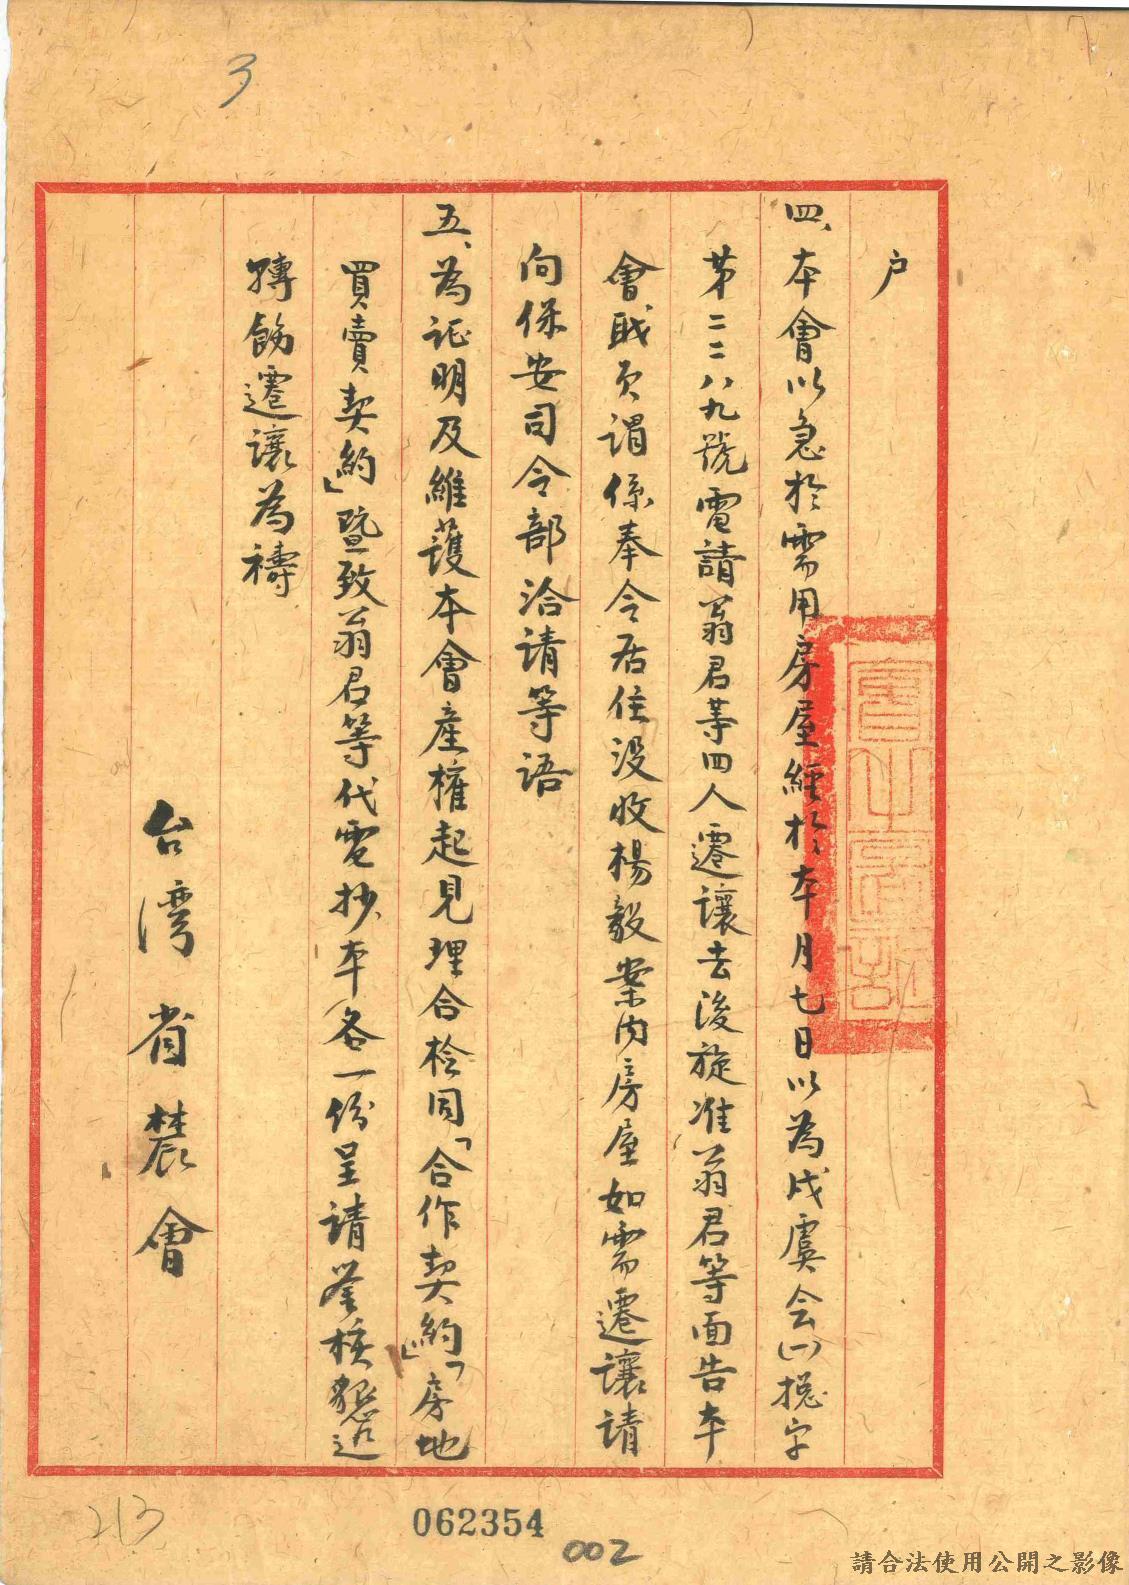 3
户
四、本會以急於需用房屋經於本月七日以為戌虞会(一)総字
第二二八九號電請翁君等四人遷讓去後旋准翁君等面告本
會職員謂係奉令居住没收楊毅案内房屋如需遷讓請
向保安司令部洽請等語
五、為証明及維護本會產權起見理合檢同「合作契約」「房地
買賣契約」暨致翁君等代電抄本各一份呈請鉴核懇迅
轉飭遷讓為禱
台湾省農會
213
062354
002
請合法使用公開之影像